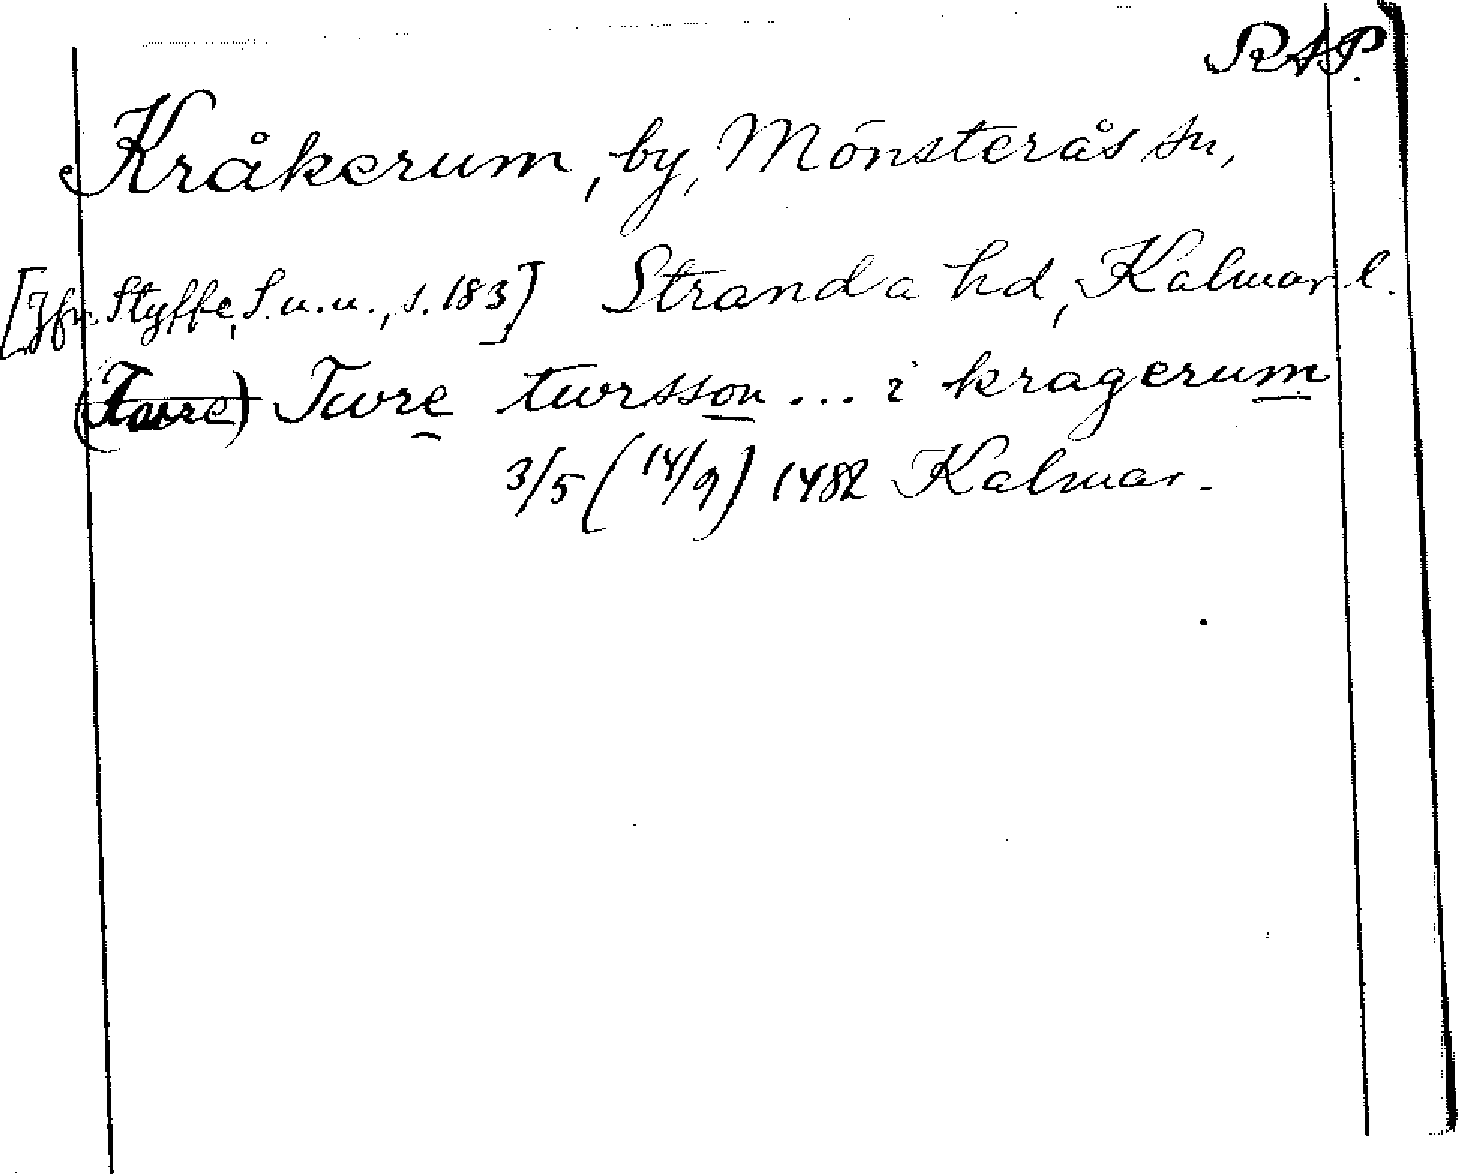 RAP.
Kråkerum, by, Mönsterås sn,
[Jfr Styffe, S.u.u., s. 183] Stranda hd, Kalmar l.
Twre twrsson ... i kragerum
3/5 (14/9) 1482 Kalmar.